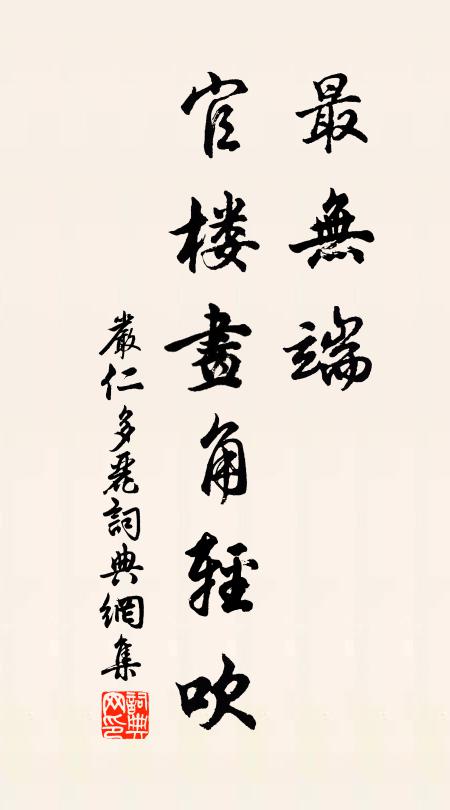 最無端
官楼畫角輕吹
嚴仁多麗詞典網集